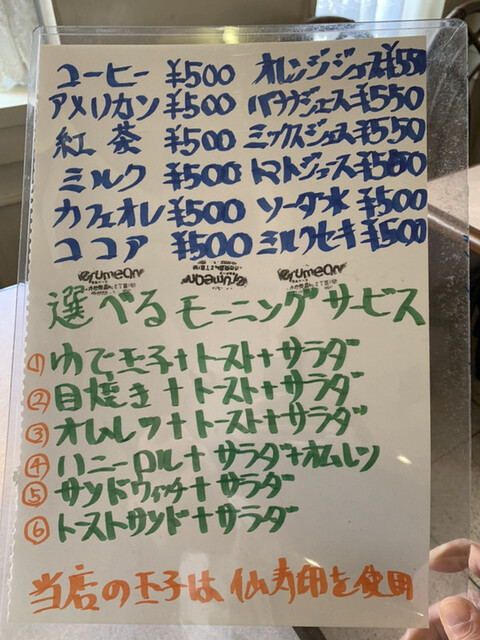 コーヒー ¥500 オレンジジュース¥550
アメリカン ¥500 バナナジュース¥550
紅茶 ¥500 ミックスジュース¥550
ミルク ¥500 トマトジュース¥500
カフェオレ ¥500 ソーダ水 ¥500
ココア ¥500 ミルクセーキ¥500
erumean erumean erumean
選べるモーニングサービス
① ゆで玉子+トースト+サラダ
② 目焼き+トースト+サラダ
③ オムレツ+トースト+サラダ
④ ハニーロール+サラダ+オムレツ
⑤ サンドウィッチ+サラダ
⑥ トーストサンド+サラダ
当店の玉子は仙寿卵を使用